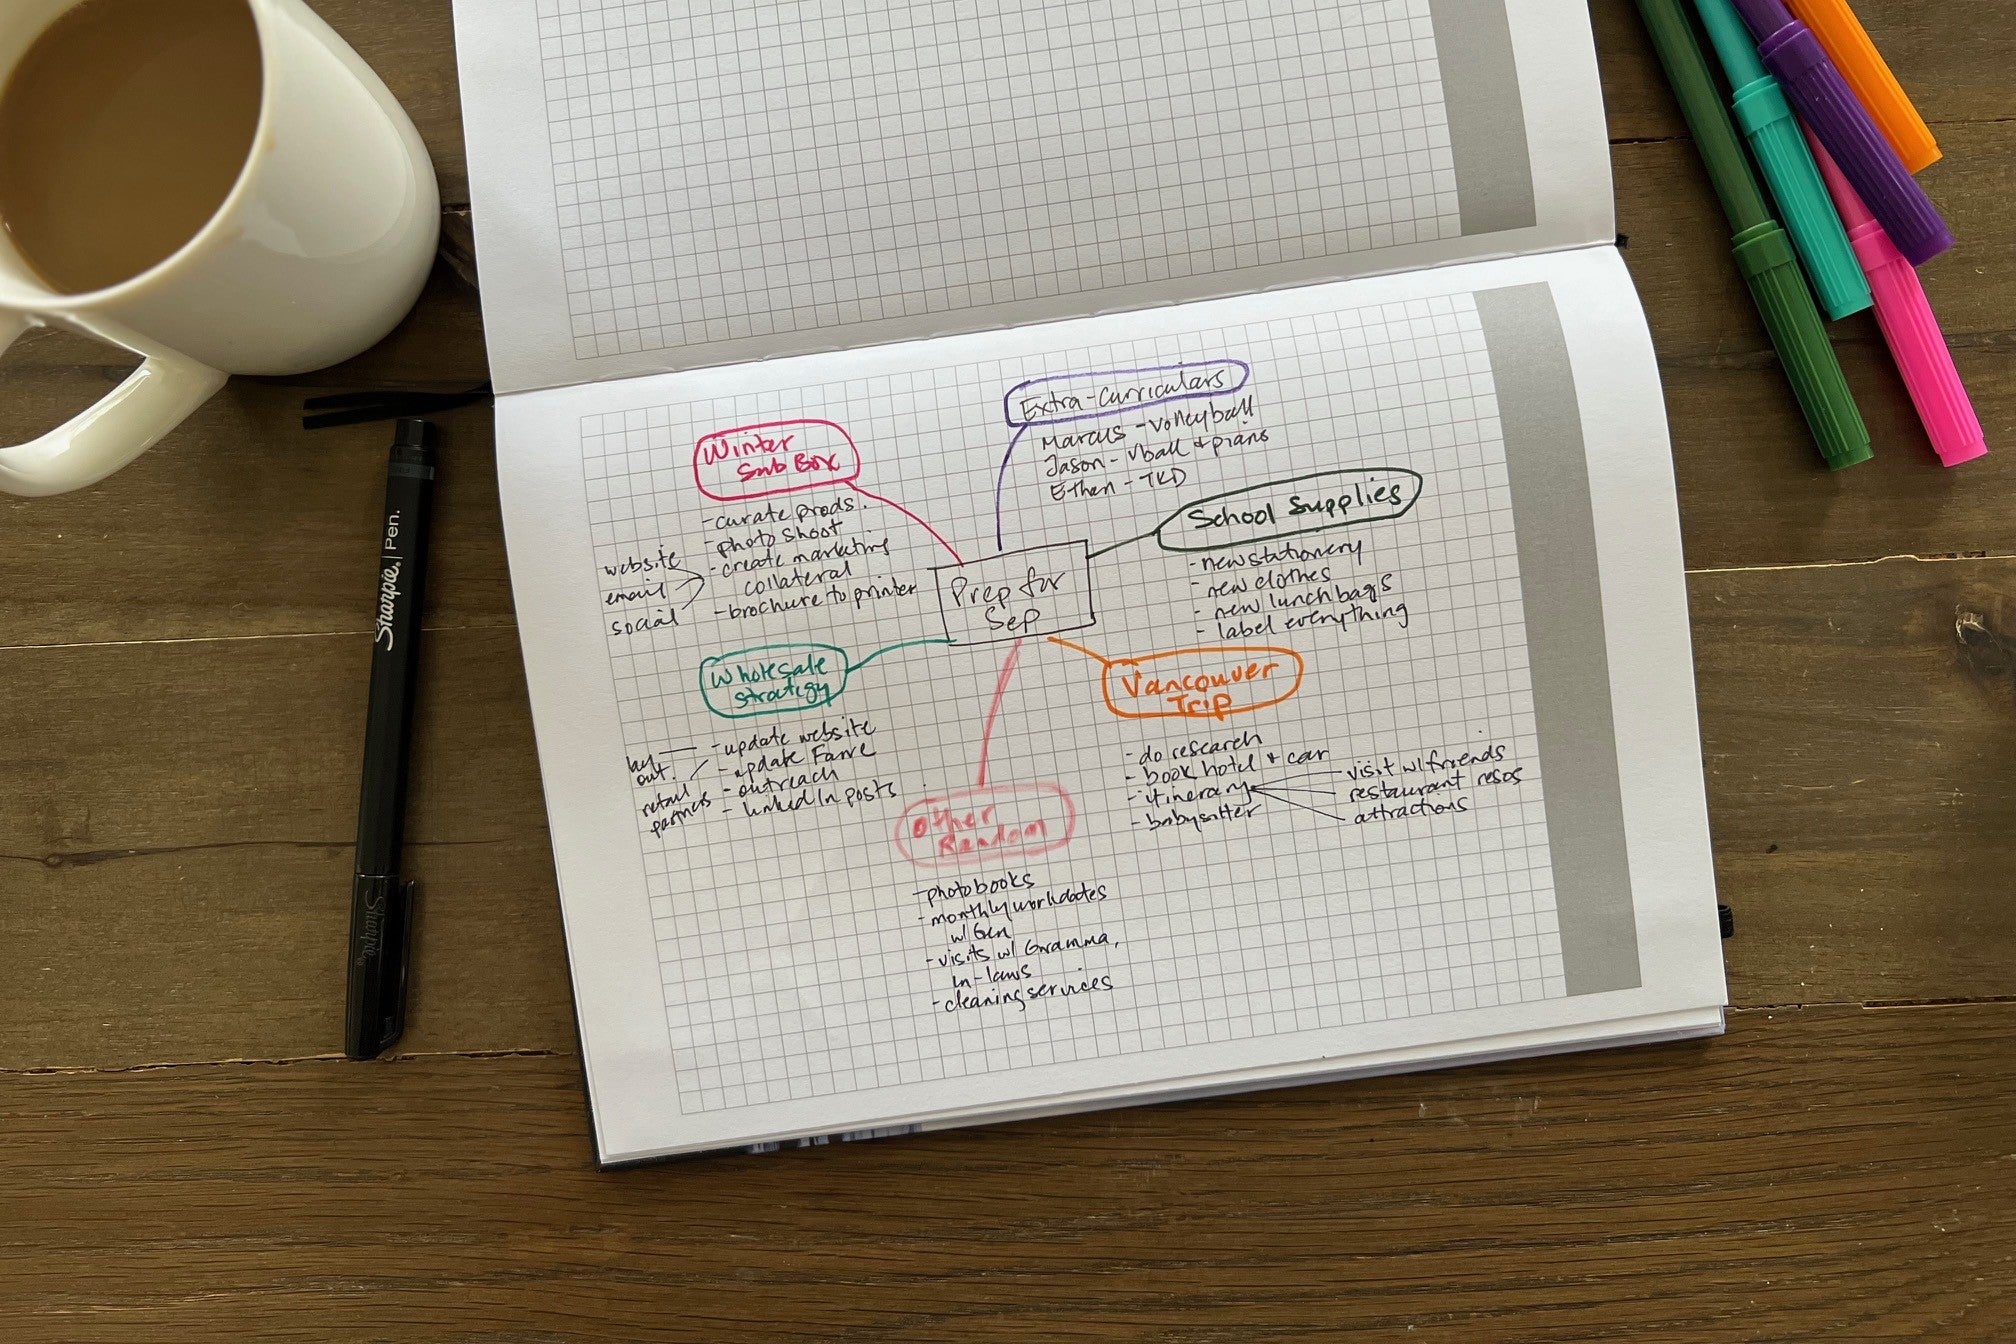 Sharpie. Pen.
Sharpie
Winter
Sub Box
- curate prods.
- photo shoot
- create marketing
collateral
- brochure to printer
website
email
social
Extra-Curriculars
Marcus - Volleyball
Jason - Vball + piano
Ethan - TKD
School Supplies
- new stationery
- new clothes
- new lunch bags
- label everything
Prep for
Sep
Wholesale
Strategy
- update website
- update Faire
- outreach
- LinkedIn posts
out.
retail
partners
Vancouver
Trip
- do research
- book hotel + car
- itinerary
- babysitter
visit w/ friends
restaurant resos
attractions
Other
Random
- photobooks
- monthly workdates
w/ Gen
- visits w/ Gramma,
in-laws
- cleaning services